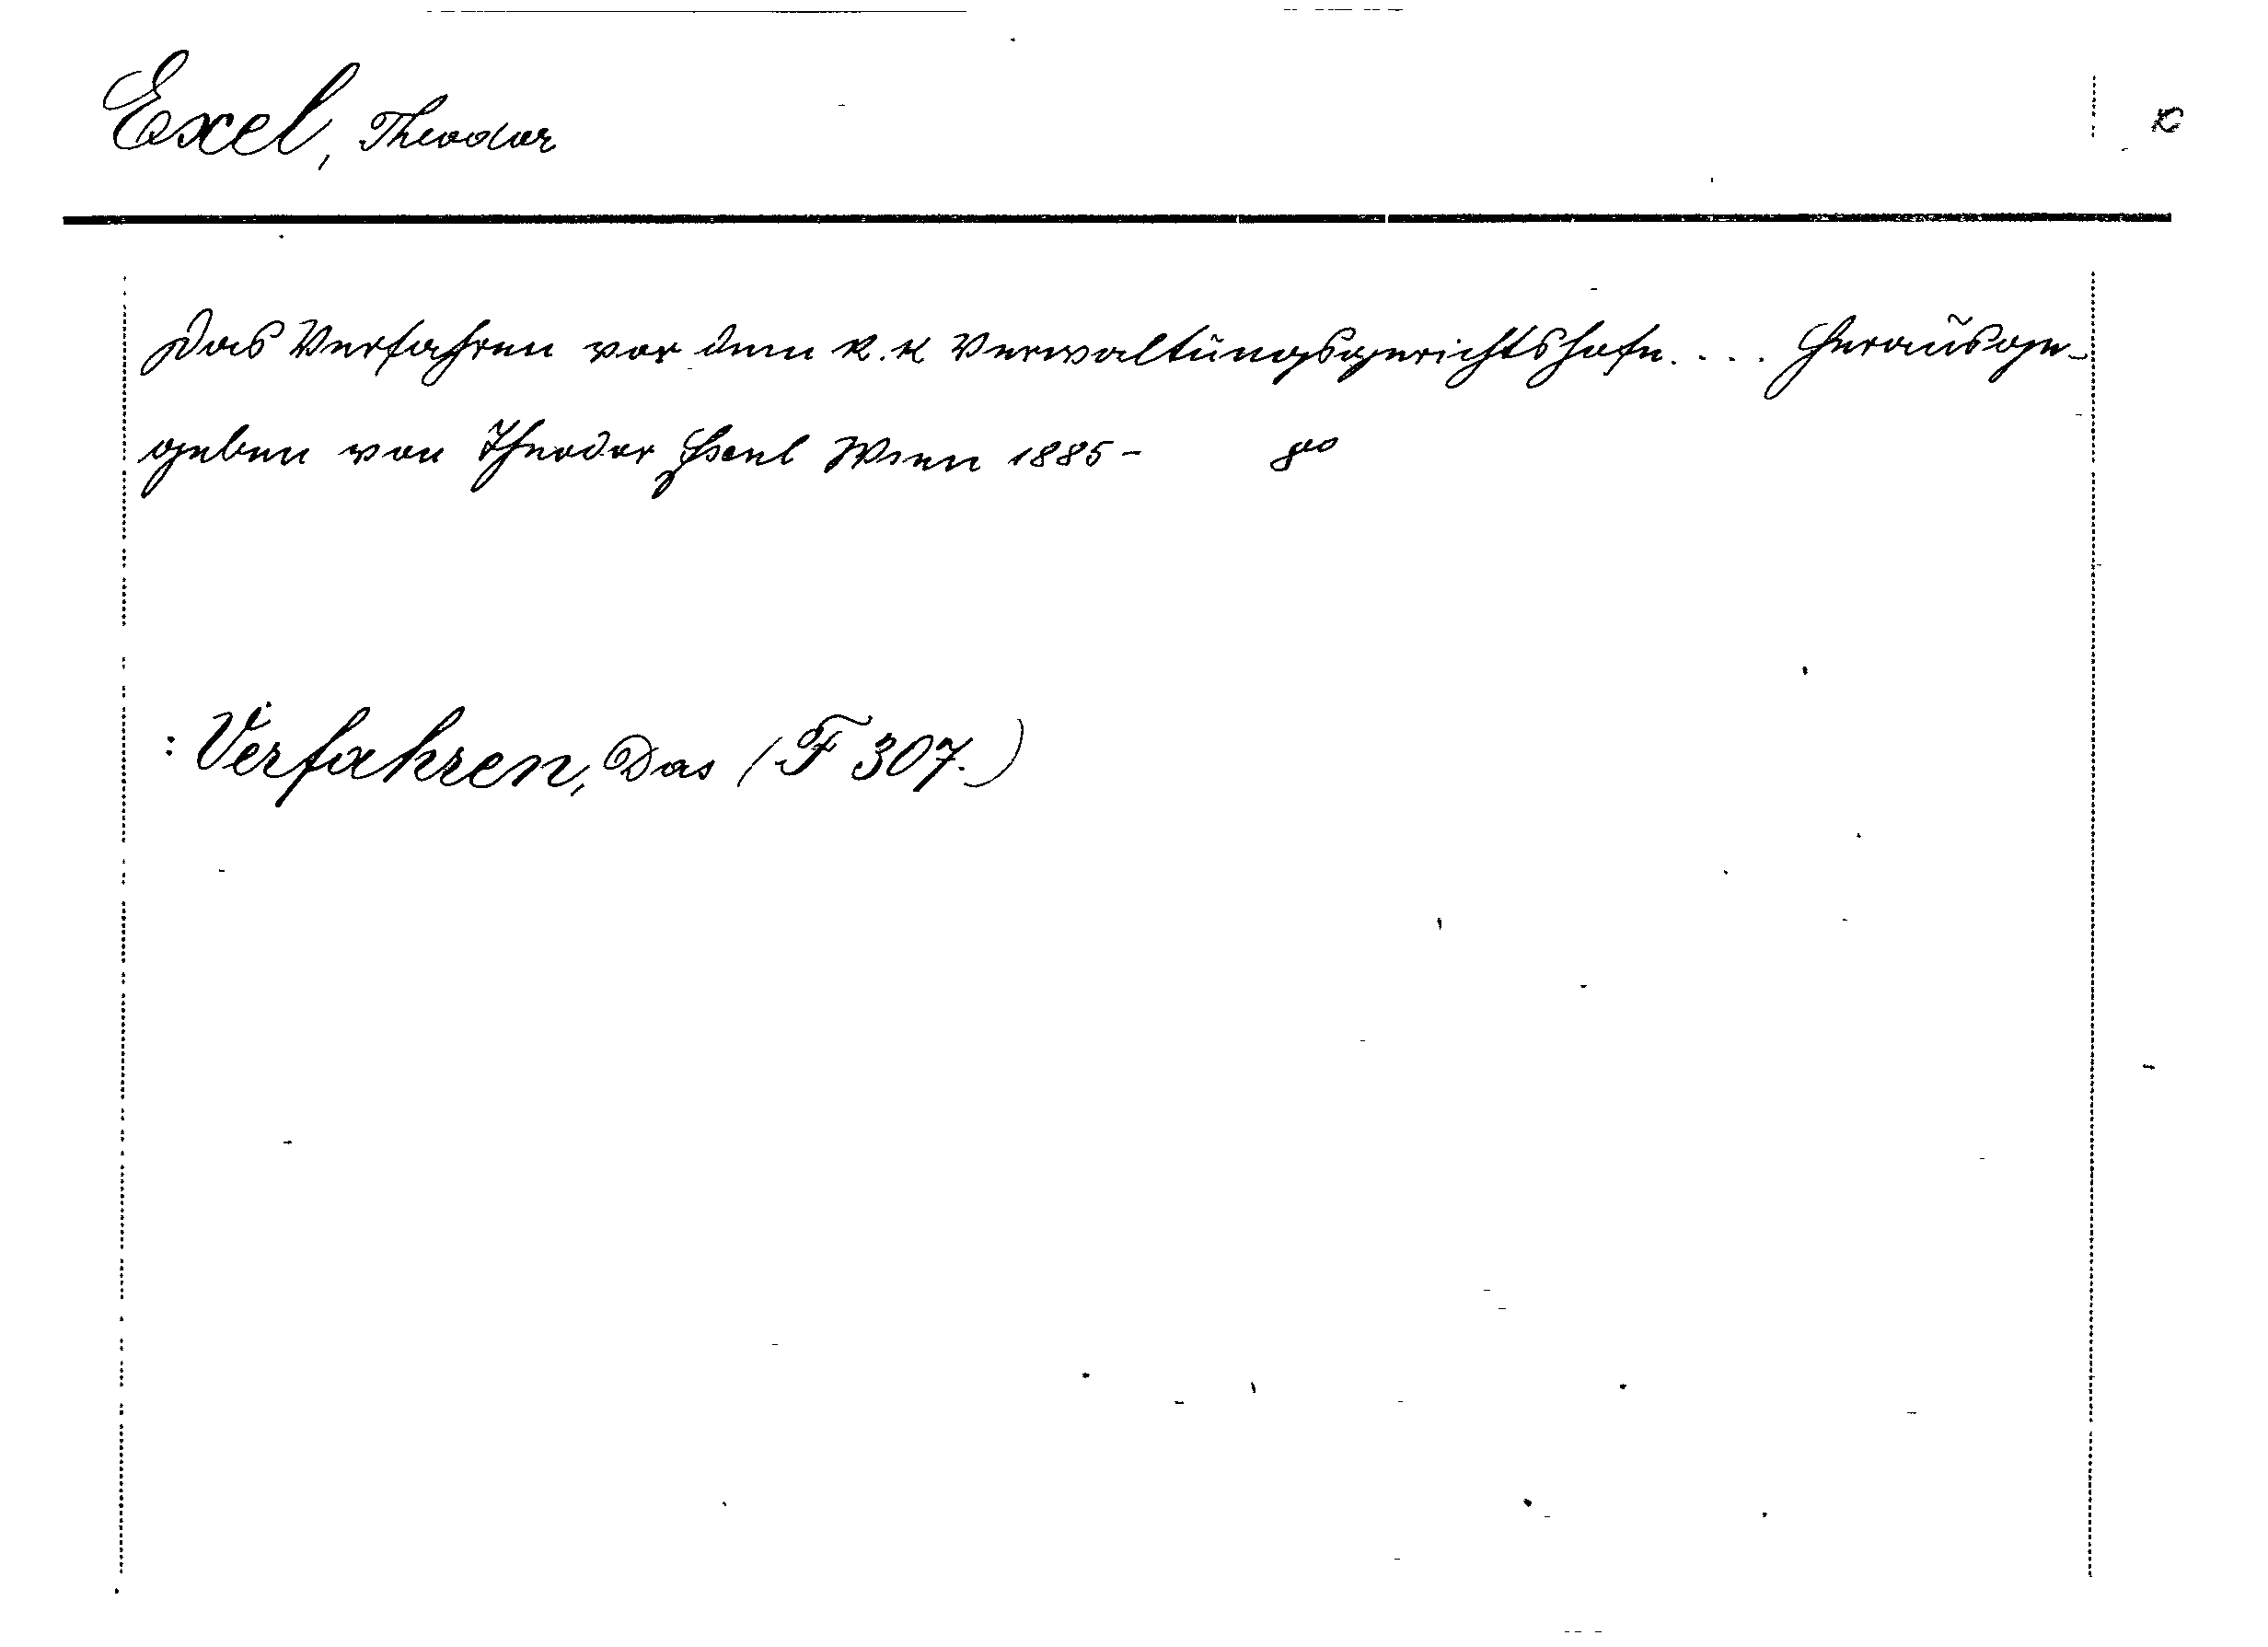 Exel, Theodor
Das Verfahren vor dem k. k Verwaltungsgerichtshofe. . . . Herausge-
geben von Theodor Exel Wien 1885 - 8vo
: Verfahren, Das (F 307.)